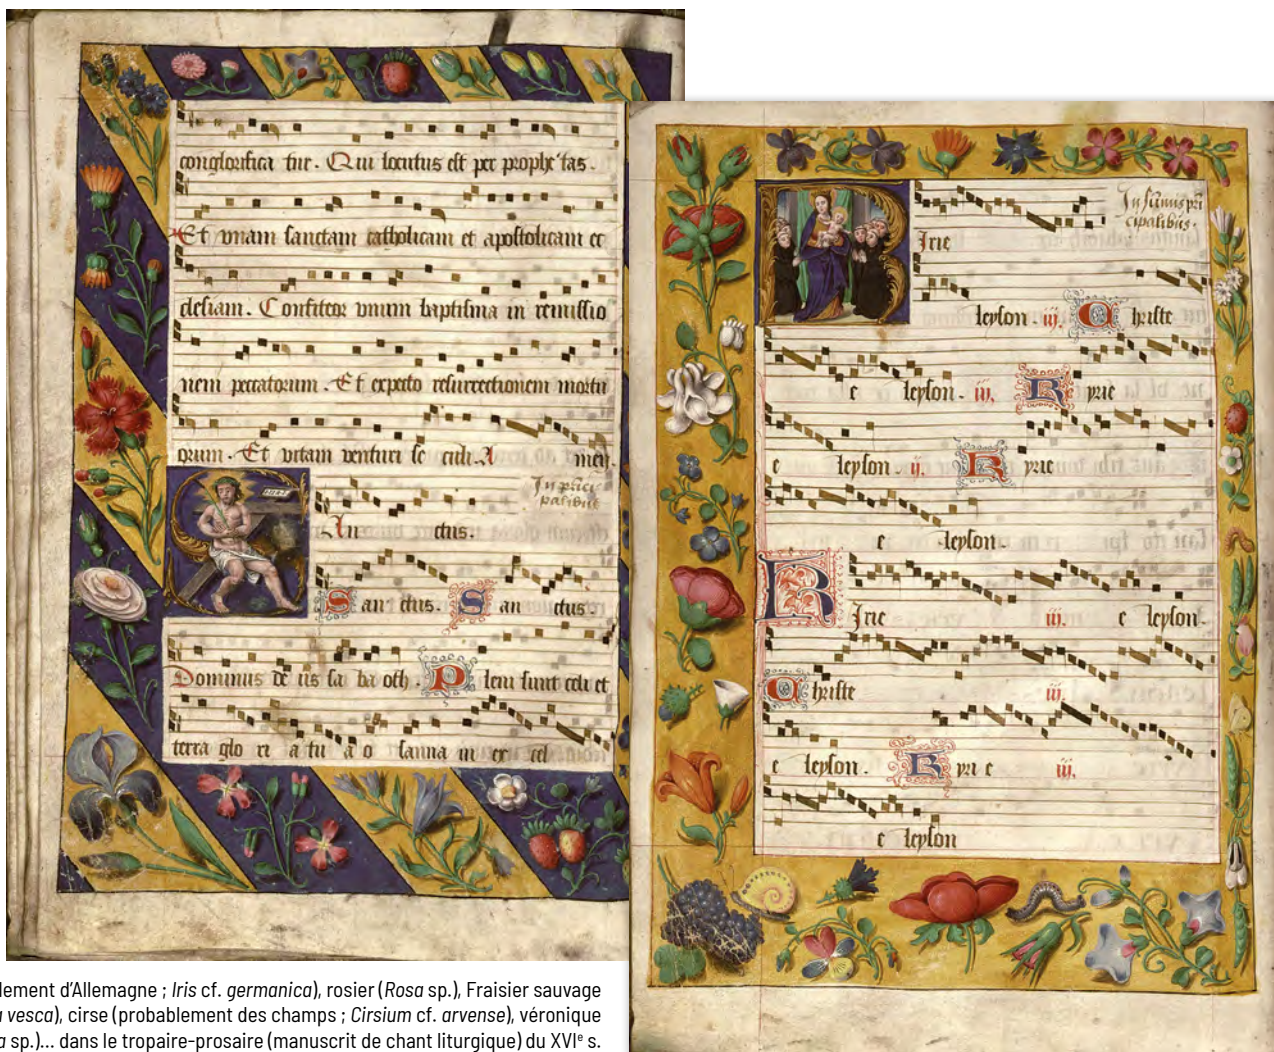 conglorifica tur. Qui locutus est per prophe tas.
Et vnam sanctam catholicam et apostolicam ec
clesiam. Confiteor vnum baptisma in remissio
nem peccatorum. Et expecto resurrectionem mortu
orum. Et vitam venturi se culi. A men.
In prici
palibus
An ctus.
San ctus. San ctus
Dominus de us sa ba oth. Pleni sunt celi et
terra glo ri a tu a o sanna in ex cel
In festiuis pri
cipalibus.
Irie
leyson. iij. Christe
e leyson. iij. Kyrie
e leyson. ij. Kyrie
e leyson.
KIrie iij. e leyson.
Christe iij.
e leyson. Kyri e iij.
e leyson
lement d'Allemagne ; Iris cf. germanica), rosier (Rosa sp.), Fraisier sauvage
vesca), cirse (probablement des champs ; Cirsium cf. arvense), véronique
sp.)... dans le tropaire-prosaire (manuscrit de chant liturgique) du XVIe s.